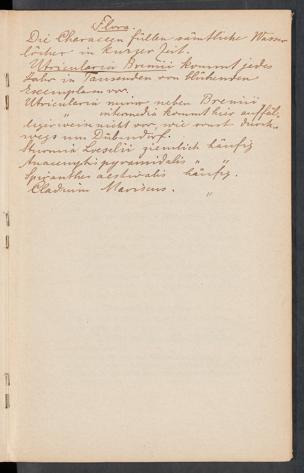 Flora.
Die Characeen füllen sämtliche Wasser
löcher in kurzer Zeit.
Utricularia Bremii kommt jedes
Jahr in Tausenden von blühenden
Exemplaren vor.
Utricularia minor neben Bremii
" intermedia kommt hier auffäl-
ligerweise nicht vor, wie sonst durch-
wegs um Dübendorf.
Sturmia Loeselii ziemlich häufig
Anacamptis pyramidalis " "
Spiranthes aestivalis häufig.
Cladium Mariscus. "